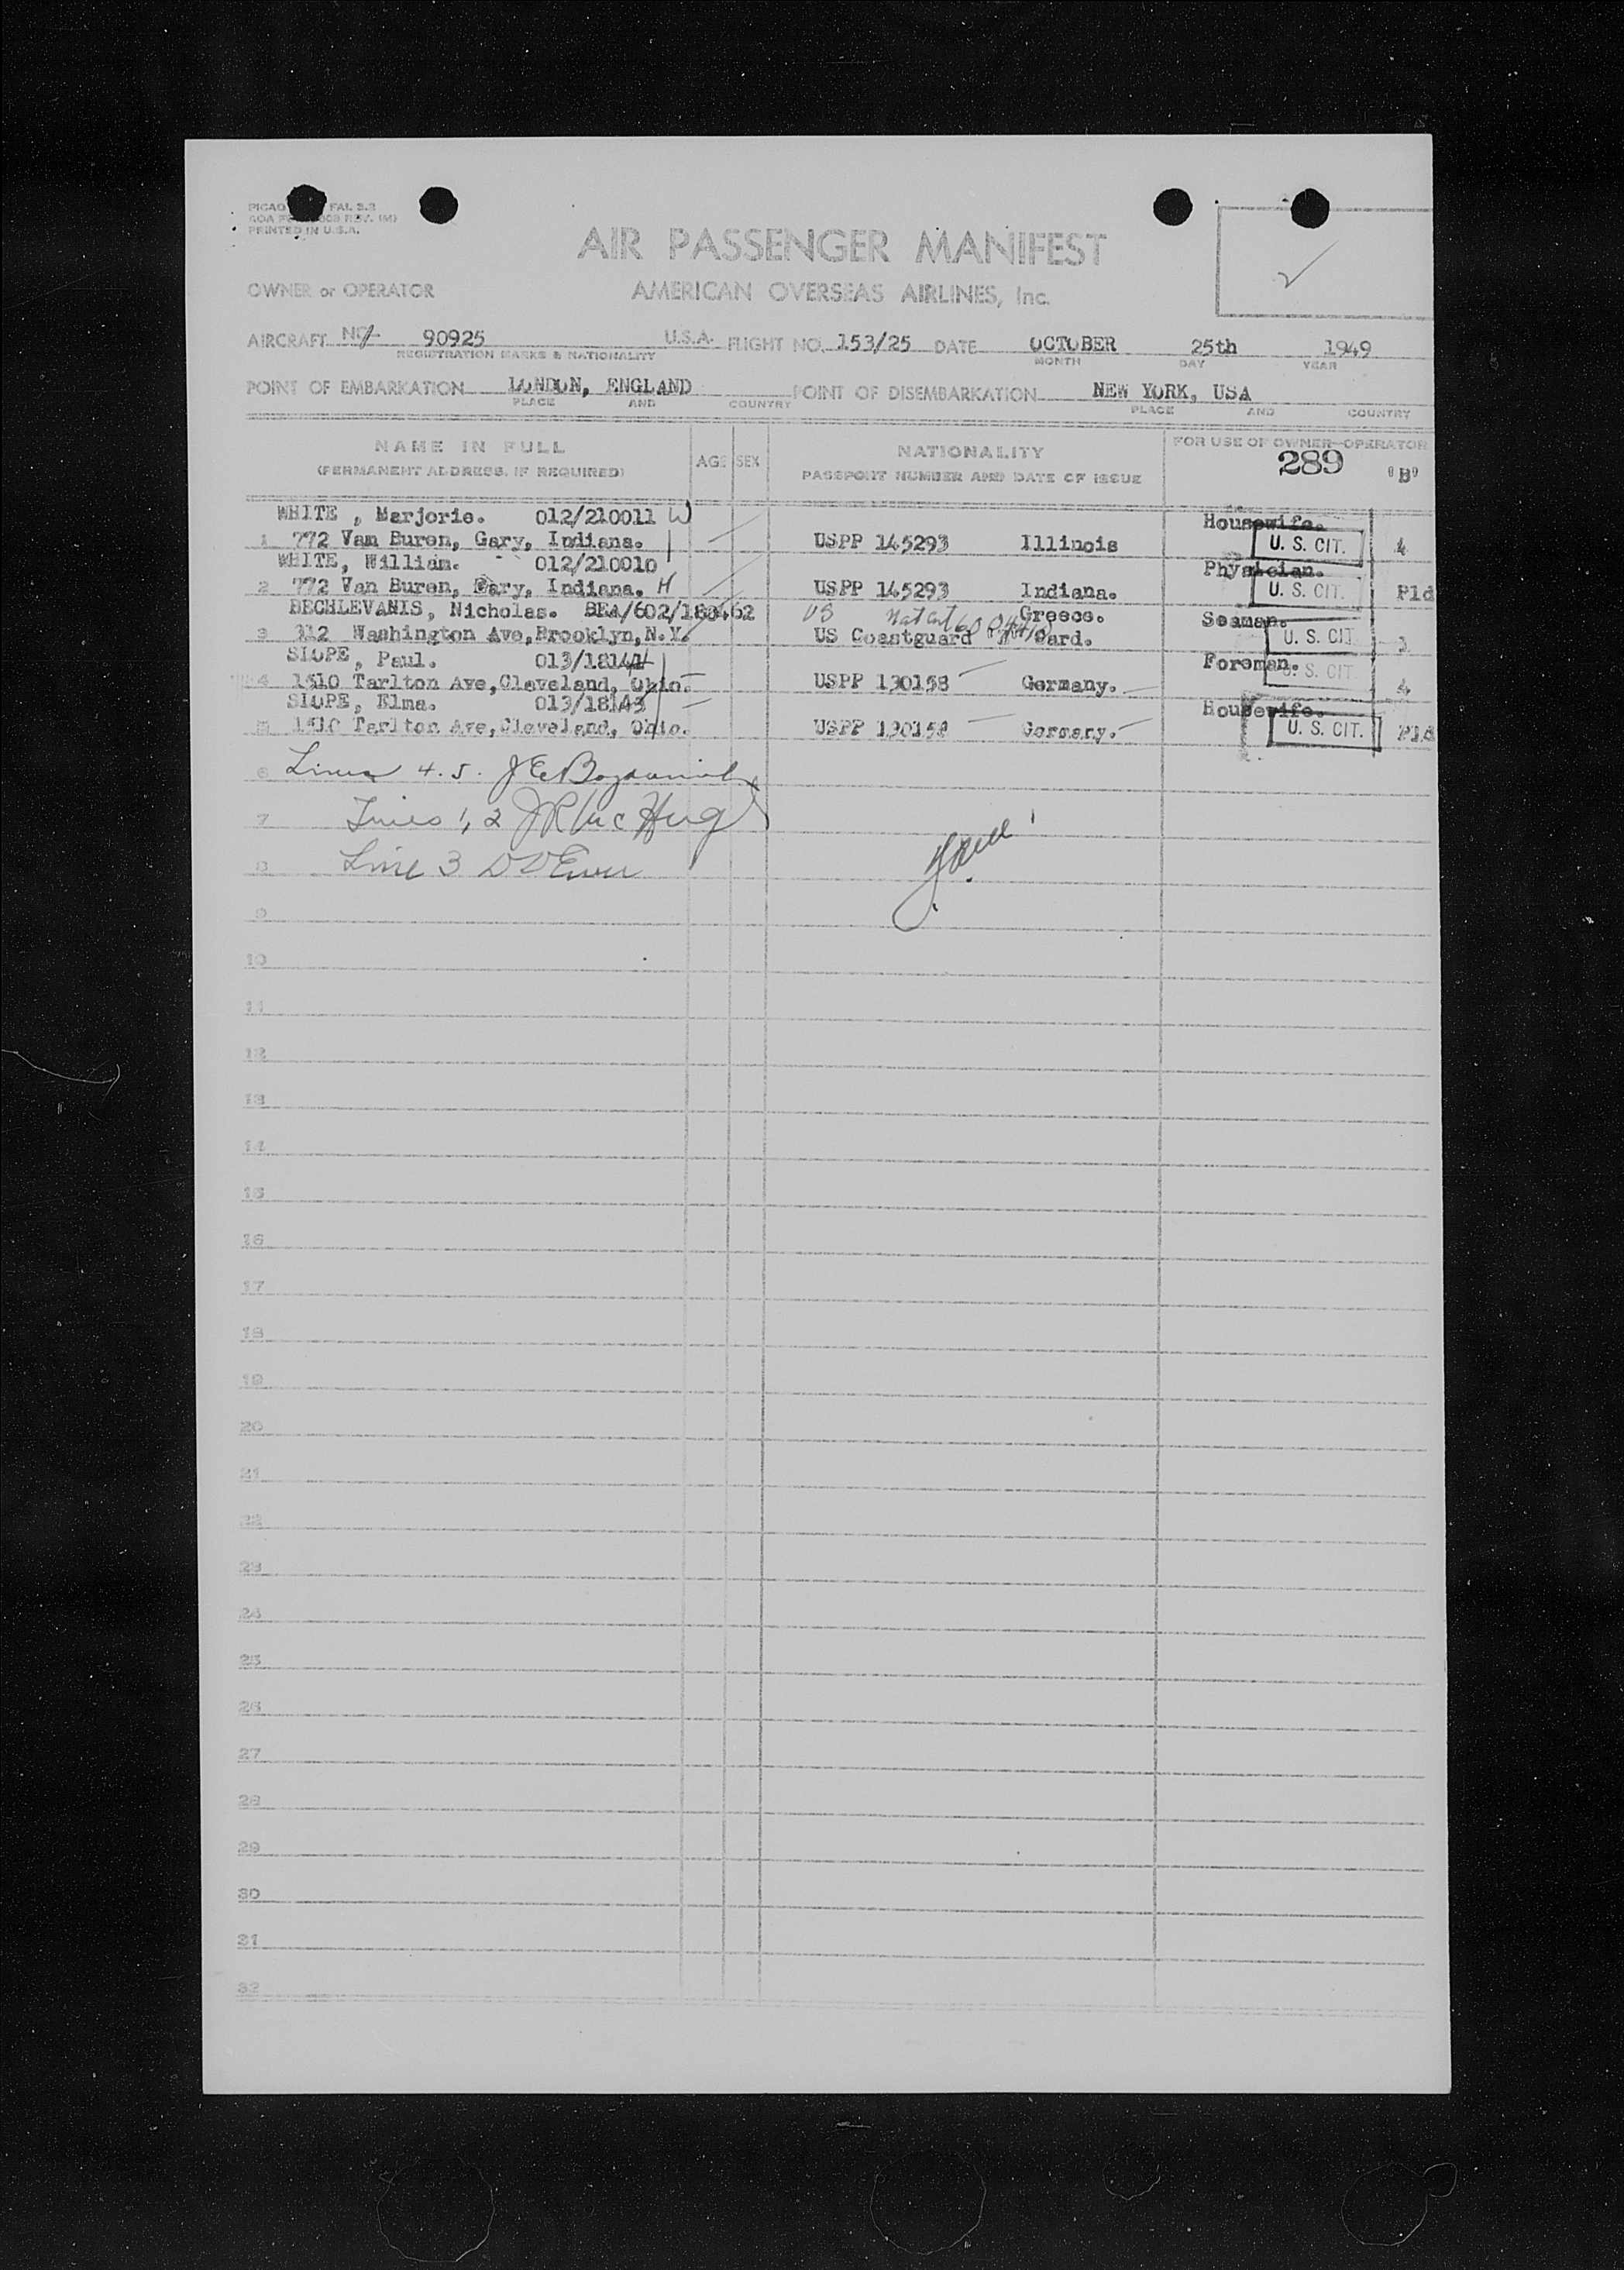 PICAO FAL 2.3
AOA REV. (M)
PRINTED IN U.S.A.
AIR PASSENGER MANIFEST
OWNER or OPERATOR AMERICAN OVERSEAS AIRLINES, Inc.
AIRCRAFT 90925 U.S.A. FLIGHT NO. 153/25 DATE OCTOBER 25th 1949
REGISTRATION MARKS & NATIONALITY MONTH DAY YEAR
POINT OF EMBARKATION LONDON, ENGLAND POINT OF DISEMBARKATION NEW YORK, USA
PLACE AND COUNTRY PLACE AND COUNTRY
NAME IN FULL AGE SEX NATIONALITY FOR USE OF OWNER-OPERATOR
(PERMANENT ADDRESS, IF REQUIRED) PASSPORT NUMBER AND DATE OF ISSUE 289 "B"
WHITE , Marjorie. 012/210011 W Housewife.
1 772 Van Buren, Gary, Indiana. USPP 145293 Illinois U. S. CIT. 4
WHITE, William. 012/210010 Physician.
2 772 Van Buren, Gary, Indiana. H USPP 145293 Indiana. U. S. CIT. Pld
BECHLEVANIS, Nicholas. BEA/602/180462 US Nat Cert Greece. Seaman.
3 312 Washington Ave,Brooklyn,N.Y. US Coastguard Card. U. S. CIT 1
SLOPE, Paul. 013/18144 Foreman.
4 1510 Tarlton Ave,Cleveland, Ohio. USPP 130158 Germany. U. S. CIT 4
SLOPE, Elma. 013/18143 Housewife.
5 1510 Tarlton Ave,Cleveland, Ohio. USPP 130158 Germany. U. S. CIT. Pld
6 Lines 4. 5.
7 Lines 1, 2
8 Line 3
9
10
11
12
13
14
15
16
17
18
19
20
21
22
23
24
25
26
27
28
29
30
31
32